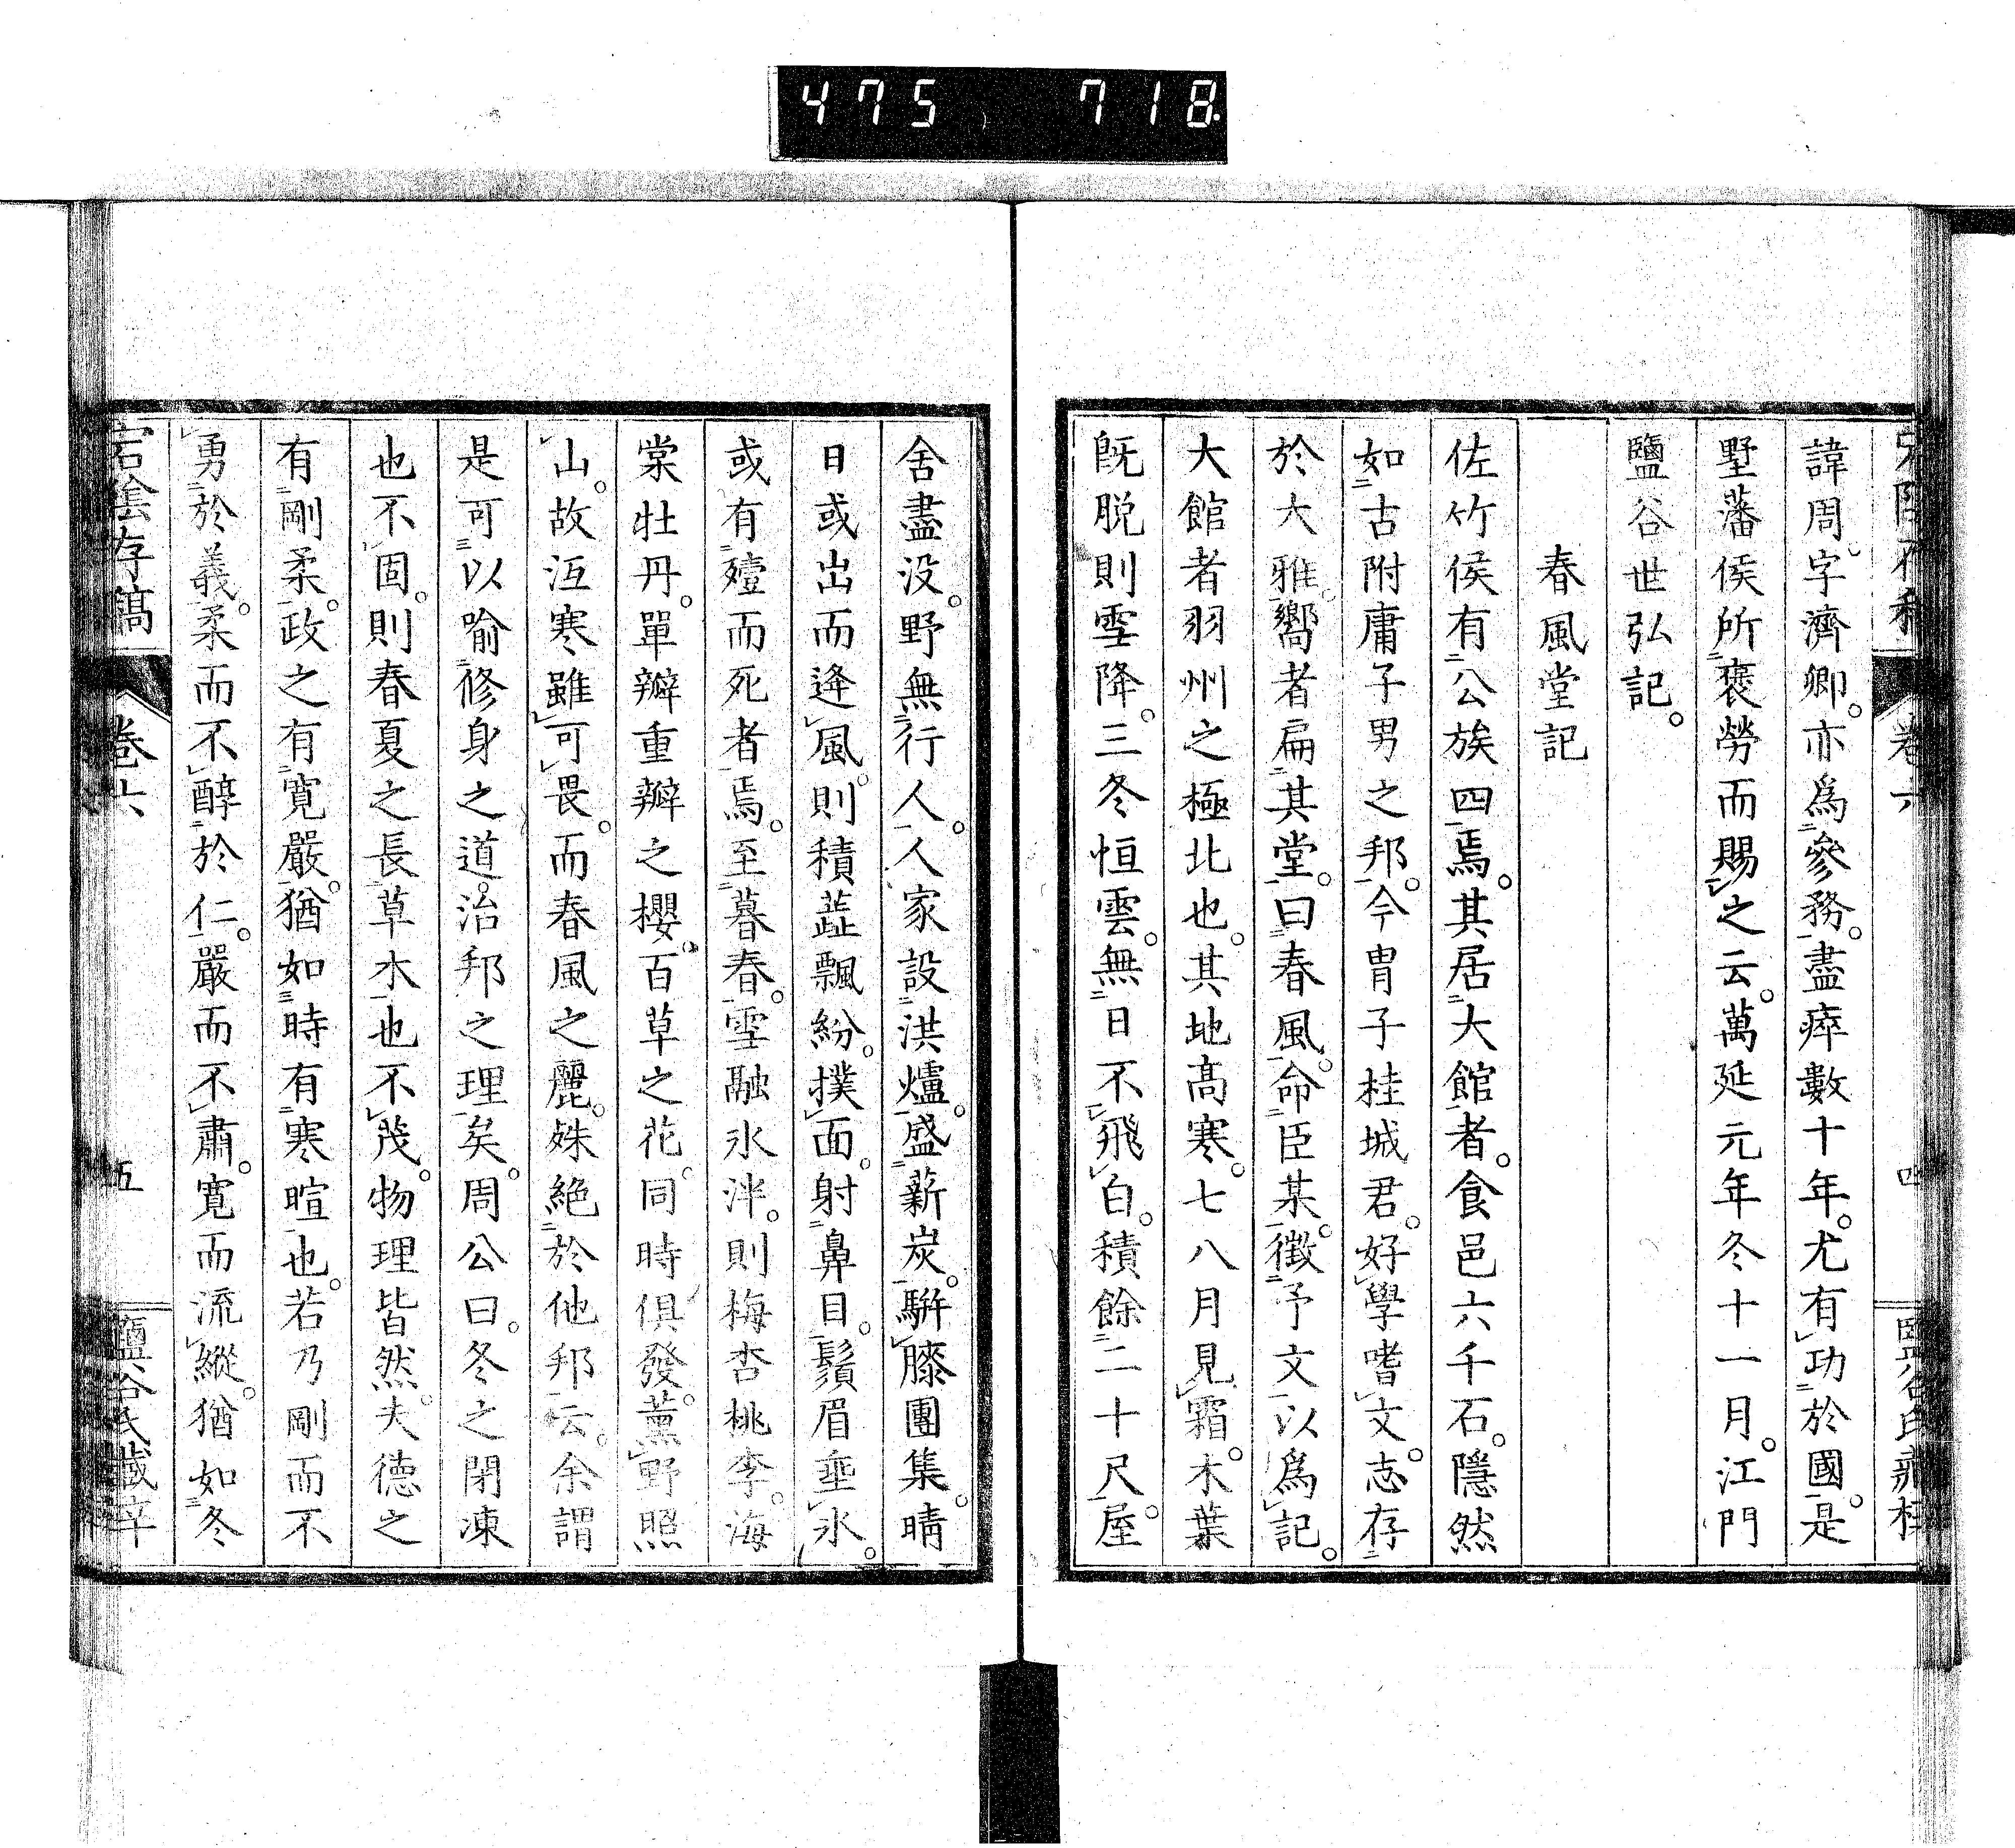 475 718
諱周字濟卿。亦爲參務。盡瘁數十年。尤有功於國。是
墅藩侯所褒勞而賜之云。萬延元年冬十一月。江門
鹽谷世弘記。
春風堂記
佐竹侯有公族四焉。其居大館者。食邑六千石。隱然
如古附庸子男之邦。今胄子桂城君。好學嗜文。志存
於大雅。嚮者扁其堂。曰春風。命臣某。徵予文以爲記。
大館者羽州之極北也。其地高寒。七八月見霜。木葉
既脱則雪降。三冬恒雲。無日不飛白。積餘二十尺。屋
舍盡没。野無行人。人家設洪爐。盛薪炭。駢膝團集。晴
日或出而逢風。則積蘁飄紛。撲面。射鼻目。鬚眉垂氷。
或有殪而死者焉。至暮春。雪融氷泮。則梅杏桃李。海
棠牡丹。單瓣重瓣之櫻。百草之花。同時俱發。薫野照
山。故沍寒雖可畏。而春風之麗。殊絶於他邦云。余謂
是可以喻修身之道。治邦之理矣。周公曰。冬之閉凍
也不固。則春夏之長草木也不茂。物理皆然。夫德之
有剛柔。政之有寬嚴。猶如時有寒暄也。若乃剛而不
勇於義。柔而不醇於仁。嚴而不肅。寬而流縱。猶如冬
宕陰存稿
卷六
五